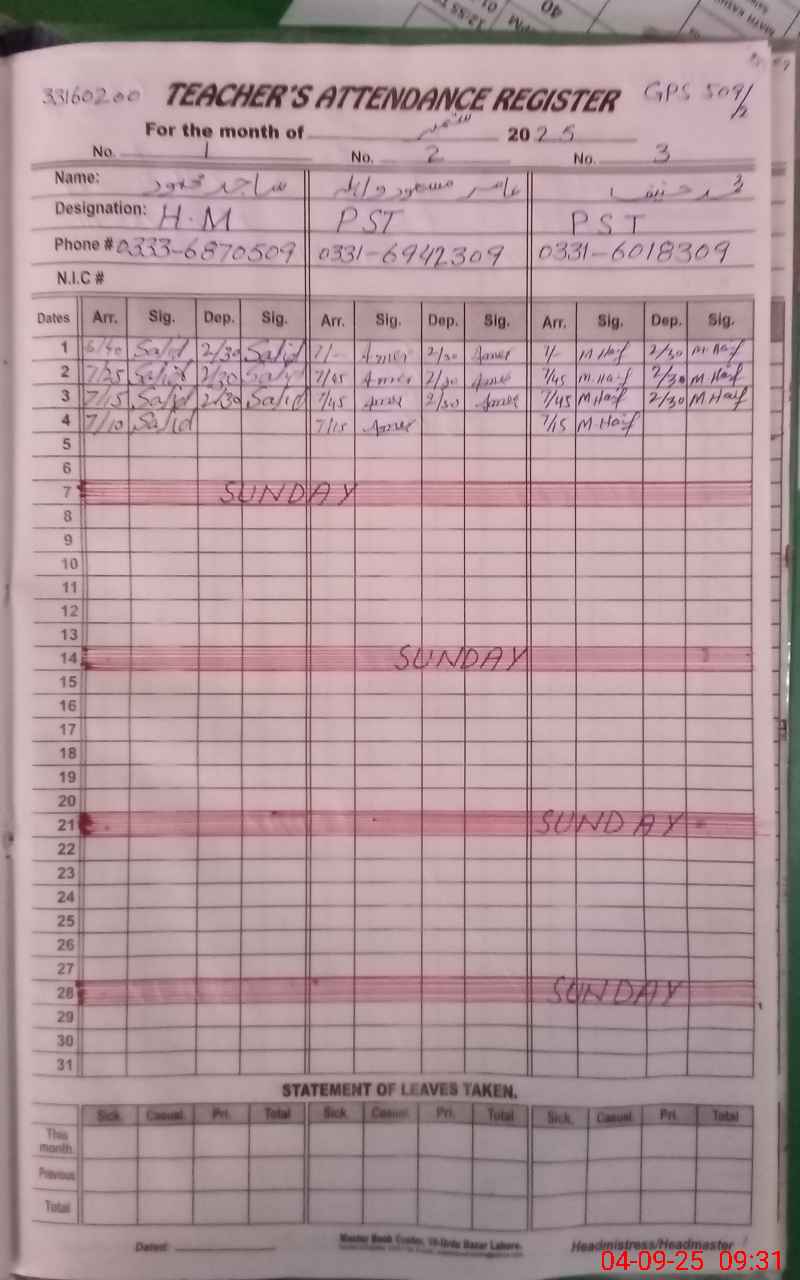 33160200 TEACHER'S ATTENDANCE REGISTER GPS 509/
For the month of ستمبر 2025
No. 1 No. 2 No. 3
Name: ساجد محمود عامر مسعود محمد حنیف
Designation: H.M PST PST
Phone # 0333-6870509 0331-6942309 0331-6018309
N.I.C #
Dates Arr. Sig. Dep. Sig. Arr. Sig. Dep. Sig. Arr. Sig. Dep. Sig.
1 6/40 Sajid 2/30 Sajid 7/- Amer 2/30 Amer 7/- M.Haif 2/30 M.Haif
2 7/25 Sajid 2/30 Sajid 7/45 Amer 2/30 Amer 7/45 M.Haif 2/30 M.Haif
3 7/15 Sajid 2/30 Sajid 7/45 Amer 2/30 Amer 7/45 M.Haif 2/30 M.Haif
4 7/10 Sajid 7/15 Amer 7/15 M.Haif
5
6
7 SUNDAY
8
9
10
11
12
13
14 SUNDAY
15
16
17
18
19
20
21 SUNDAY
22
23
24
25
26
27
28 SUNDAY
29
30
31
STATEMENT OF LEAVES TAKEN.
Sick. Casual. Pri. Total Sick. Casual. Pri. Total Sick. Casual. Pri. Total
This month.
Previous
Total
Dated: Master Book Centre, Urdu Bazar Lahore. Headmistress/Headmaster
04-09-25 09:31